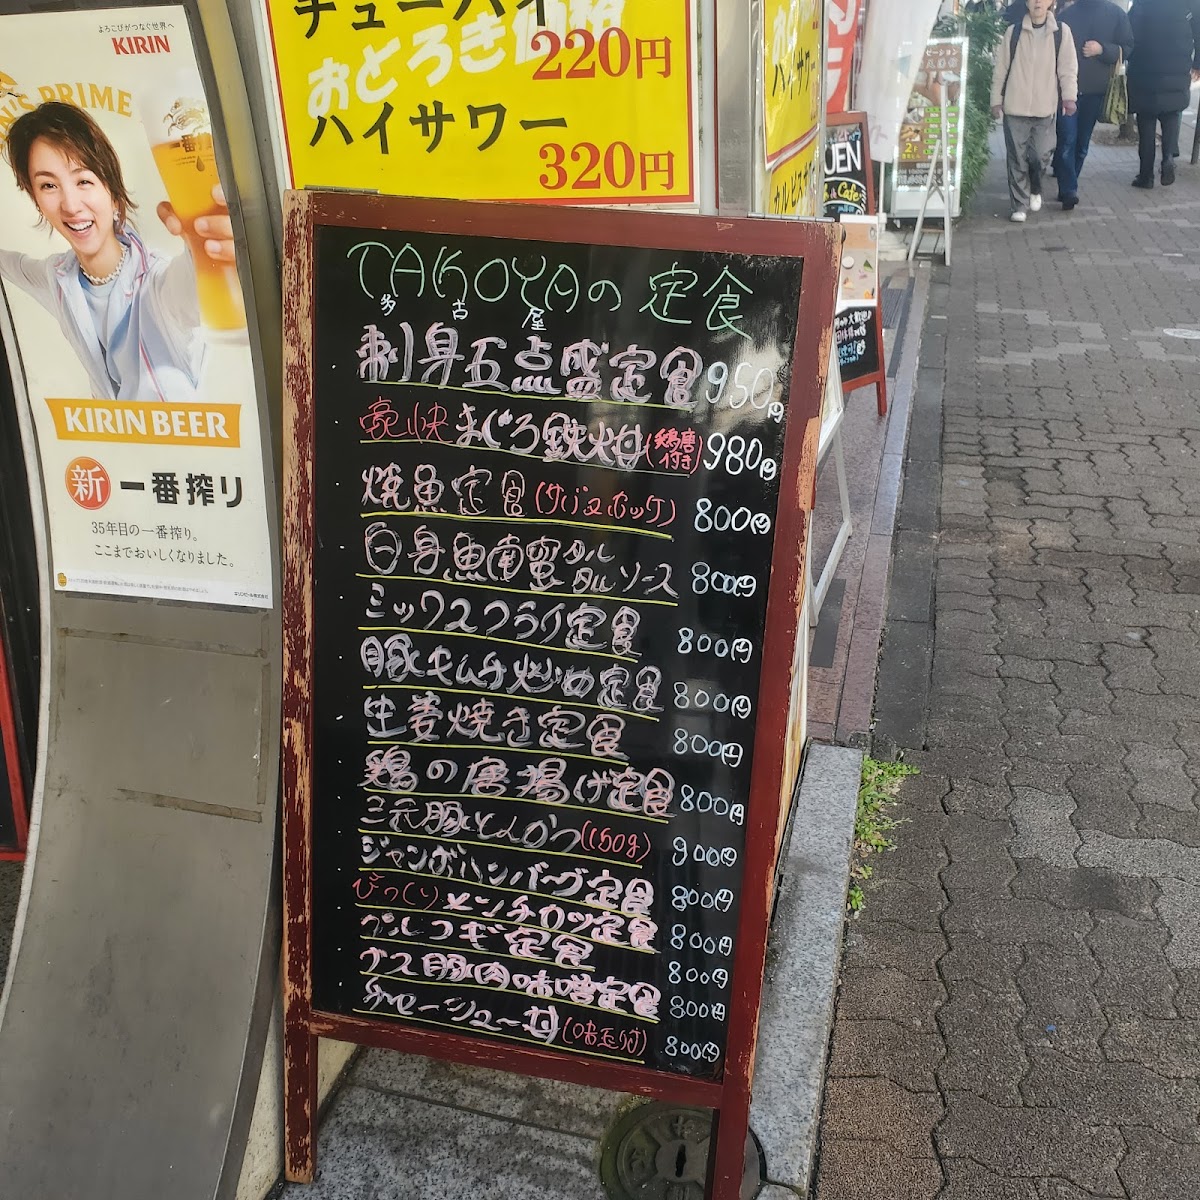 よろこびがつなぐ世界へ
KIRIN
PRIME
KIRIN BEER
新 一番搾り
35年目の一番搾り。
ここまでおいしくなりました。
チューハイ
おどろき価格
220円
ハイサワー
320円
TAKOYAの定食
多古屋
刺身五点盛定食 950円
豪快まぐろ鉄火丼(鶏唐付き) 980円
焼魚定食(サバ又ホッケ) 800円
白身魚南蛮タルタルソース 800円
ミックスフライ定食 800円
豚キムチ炒め定食 800円
生姜焼き定食 800円
鶏の唐揚げ定食 800円
三元豚とんかつ(150g) 900円
ジャンボハンバーグ定食 800円
びっくりメンチカツ定食 800円
プルコギ定食 800円
ナス豚肉味噌定食 800円
チャーシュー丼(味玉付) 800円
ハイサワー
カルピスサワー
UEN
Cafe